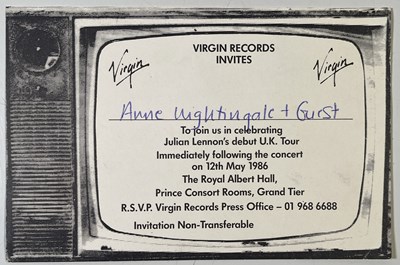 VIRGIN RECORDS
INVITES
Virgin
Virgin
Anne Nightingale + Guest
To join us in celebrating
Julian Lennon's debut U.K. Tour
Immediately following the concert
on 12th May 1986
The Royal Albert Hall,
Prince Consort Rooms, Grand Tier
R.S.V.P. Virgin Records Press Office – 01 968 6688
Invitation Non-Transferable